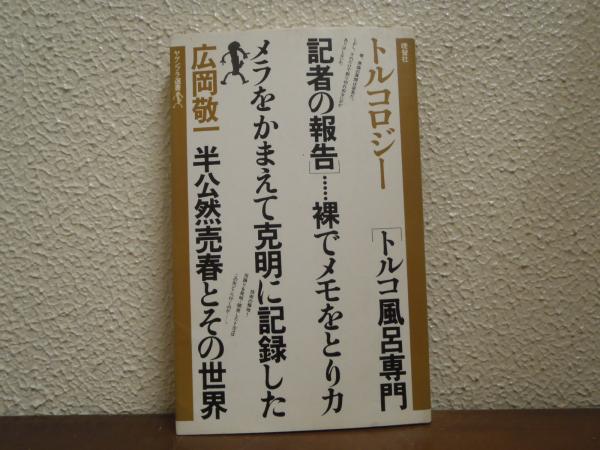 晩聲社
トルコロジー
[トルコ風呂専門
記者の報告]……裸でメモをとりカ
メラをかまえて克明に記録した
半公然売春とその世界
広岡敬一
ヤゲンブラ選書